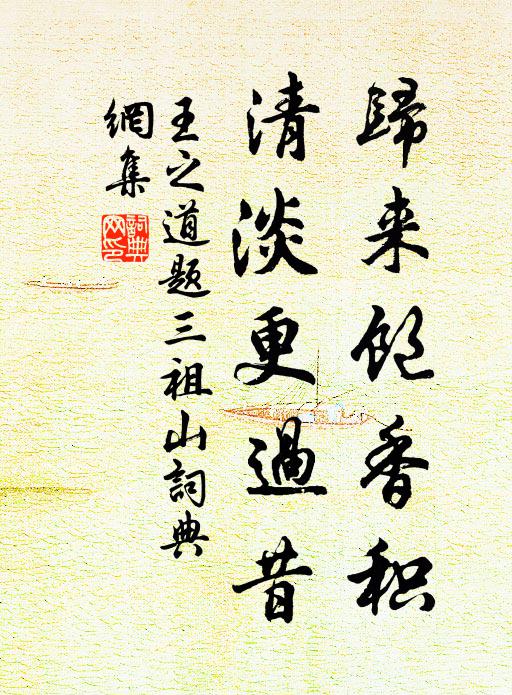 歸来飽香积
清淡更過昔
王之道题三祖山詞典
網集
詞典
网印